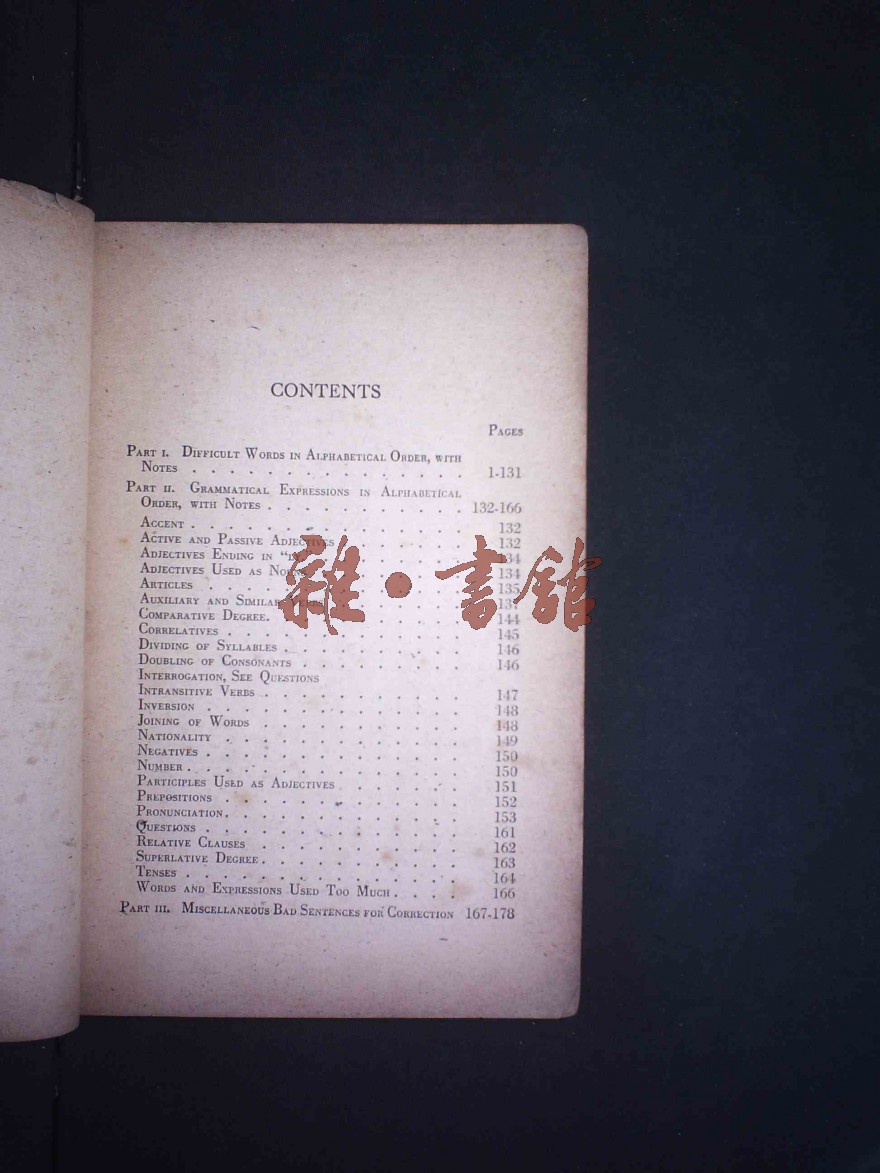 CONTENTS
PAGES
PART I. DIFFICULT WORDS IN ALPHABETICAL ORDER, WITH
NOTES . . . . . . . . . . . . . 1-131
PART II. GRAMMATICAL EXPRESSIONS IN ALPHABETICAL
ORDER, WITH NOTES . . . . . . . . . . . 132-166
ACCENT . . . . . . . . . . . . . . . 132
ACTIVE AND PASSIVE ADJECTIVES . . . . . . . 132
ADJECTIVES ENDING IN 134
ADJECTIVES USED AS NOUNS 134
ARTICLES . . . . . . . . . . . . . . 135
AUXILIARY AND SIMILAR VERBS 137
COMPARATIVE DEGREE . . . . . . . . . . . 144
CORRELATIVES . . . . . . . . . . . . . 145
DIVIDING OF SYLLABLES . . . . . . . . . . 146
DOUBLING OF CONSONANTS . . . . . . . . . 146
INTERROGATION, SEE QUESTIONS
INTRANSITIVE VERBS . . . . . . . . . . . 147
INVERSION . . . . . . . . . . . . . . 148
JOINING OF WORDS . . . . . . . . . . . 148
NATIONALITY . . . . . . . . . . . . . 149
NEGATIVES . . . . . . . . . . . . . . 150
NUMBER . . . . . . . . . . . . . . . 150
PARTICIPLES USED AS ADJECTIVES . . . . . . . 151
PREPOSITIONS . . . . . . . . . . . . . 152
PRONUNCIATION . . . . . . . . . . . . . 153
QUESTIONS . . . . . . . . . . . . . . 161
RELATIVE CLAUSES . . . . . . . . . . . . 162
SUPERLATIVE DEGREE . . . . . . . . . . . 163
TENSES . . . . . . . . . . . . . . . 164
WORDS AND EXPRESSIONS USED TOO MUCH . . . . 166
PART III. MISCELLANEOUS BAD SENTENCES FOR CORRECTION 167-178
雜·書館